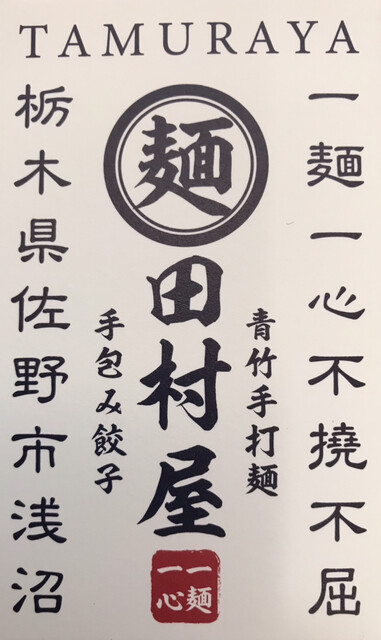 TAMURAYA
一麺一心不撓不屈
青竹手打麺
麺
田村屋
一麺
一心
手包み餃子
栃木県佐野市浅沼